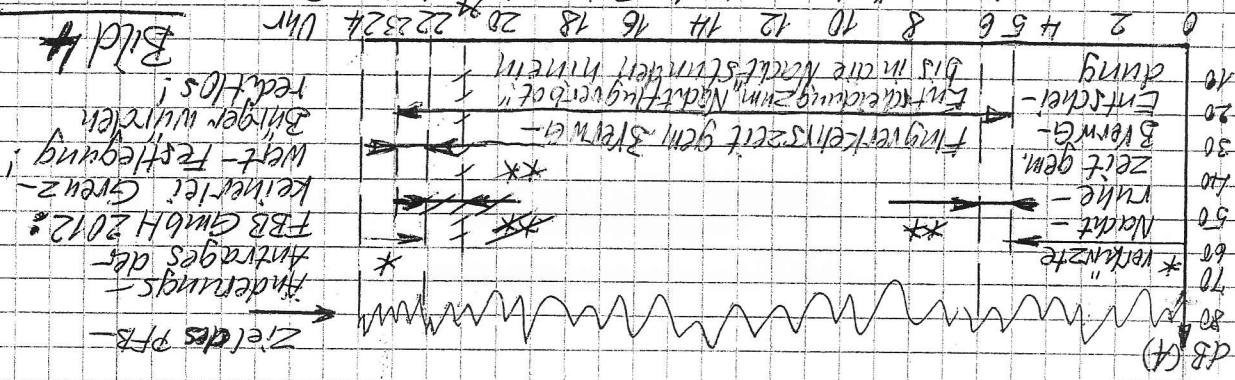 dB (A)
80
70
60
50
40
30
20
10
* "verkürzte
Nacht-
ruhe-
zeit gem.
BVerwG-
Entschei-
dung
**
**
*
**
Flugverkehrszeit gem BVerwG-
Entscheidung zum "Nachtflugverbot"
bis in die Nachtstunden hinein
0 2 4 5 6 8 10 12 14 16 18 20 22 23 24 Uhr
Ziel des PFB-
Änderungs-
Antrages der
FBB GmbH 2012:
keinerlei Grenz-
wert-Festlegung!
Bürger wurden
rechtlos!
Bild 4